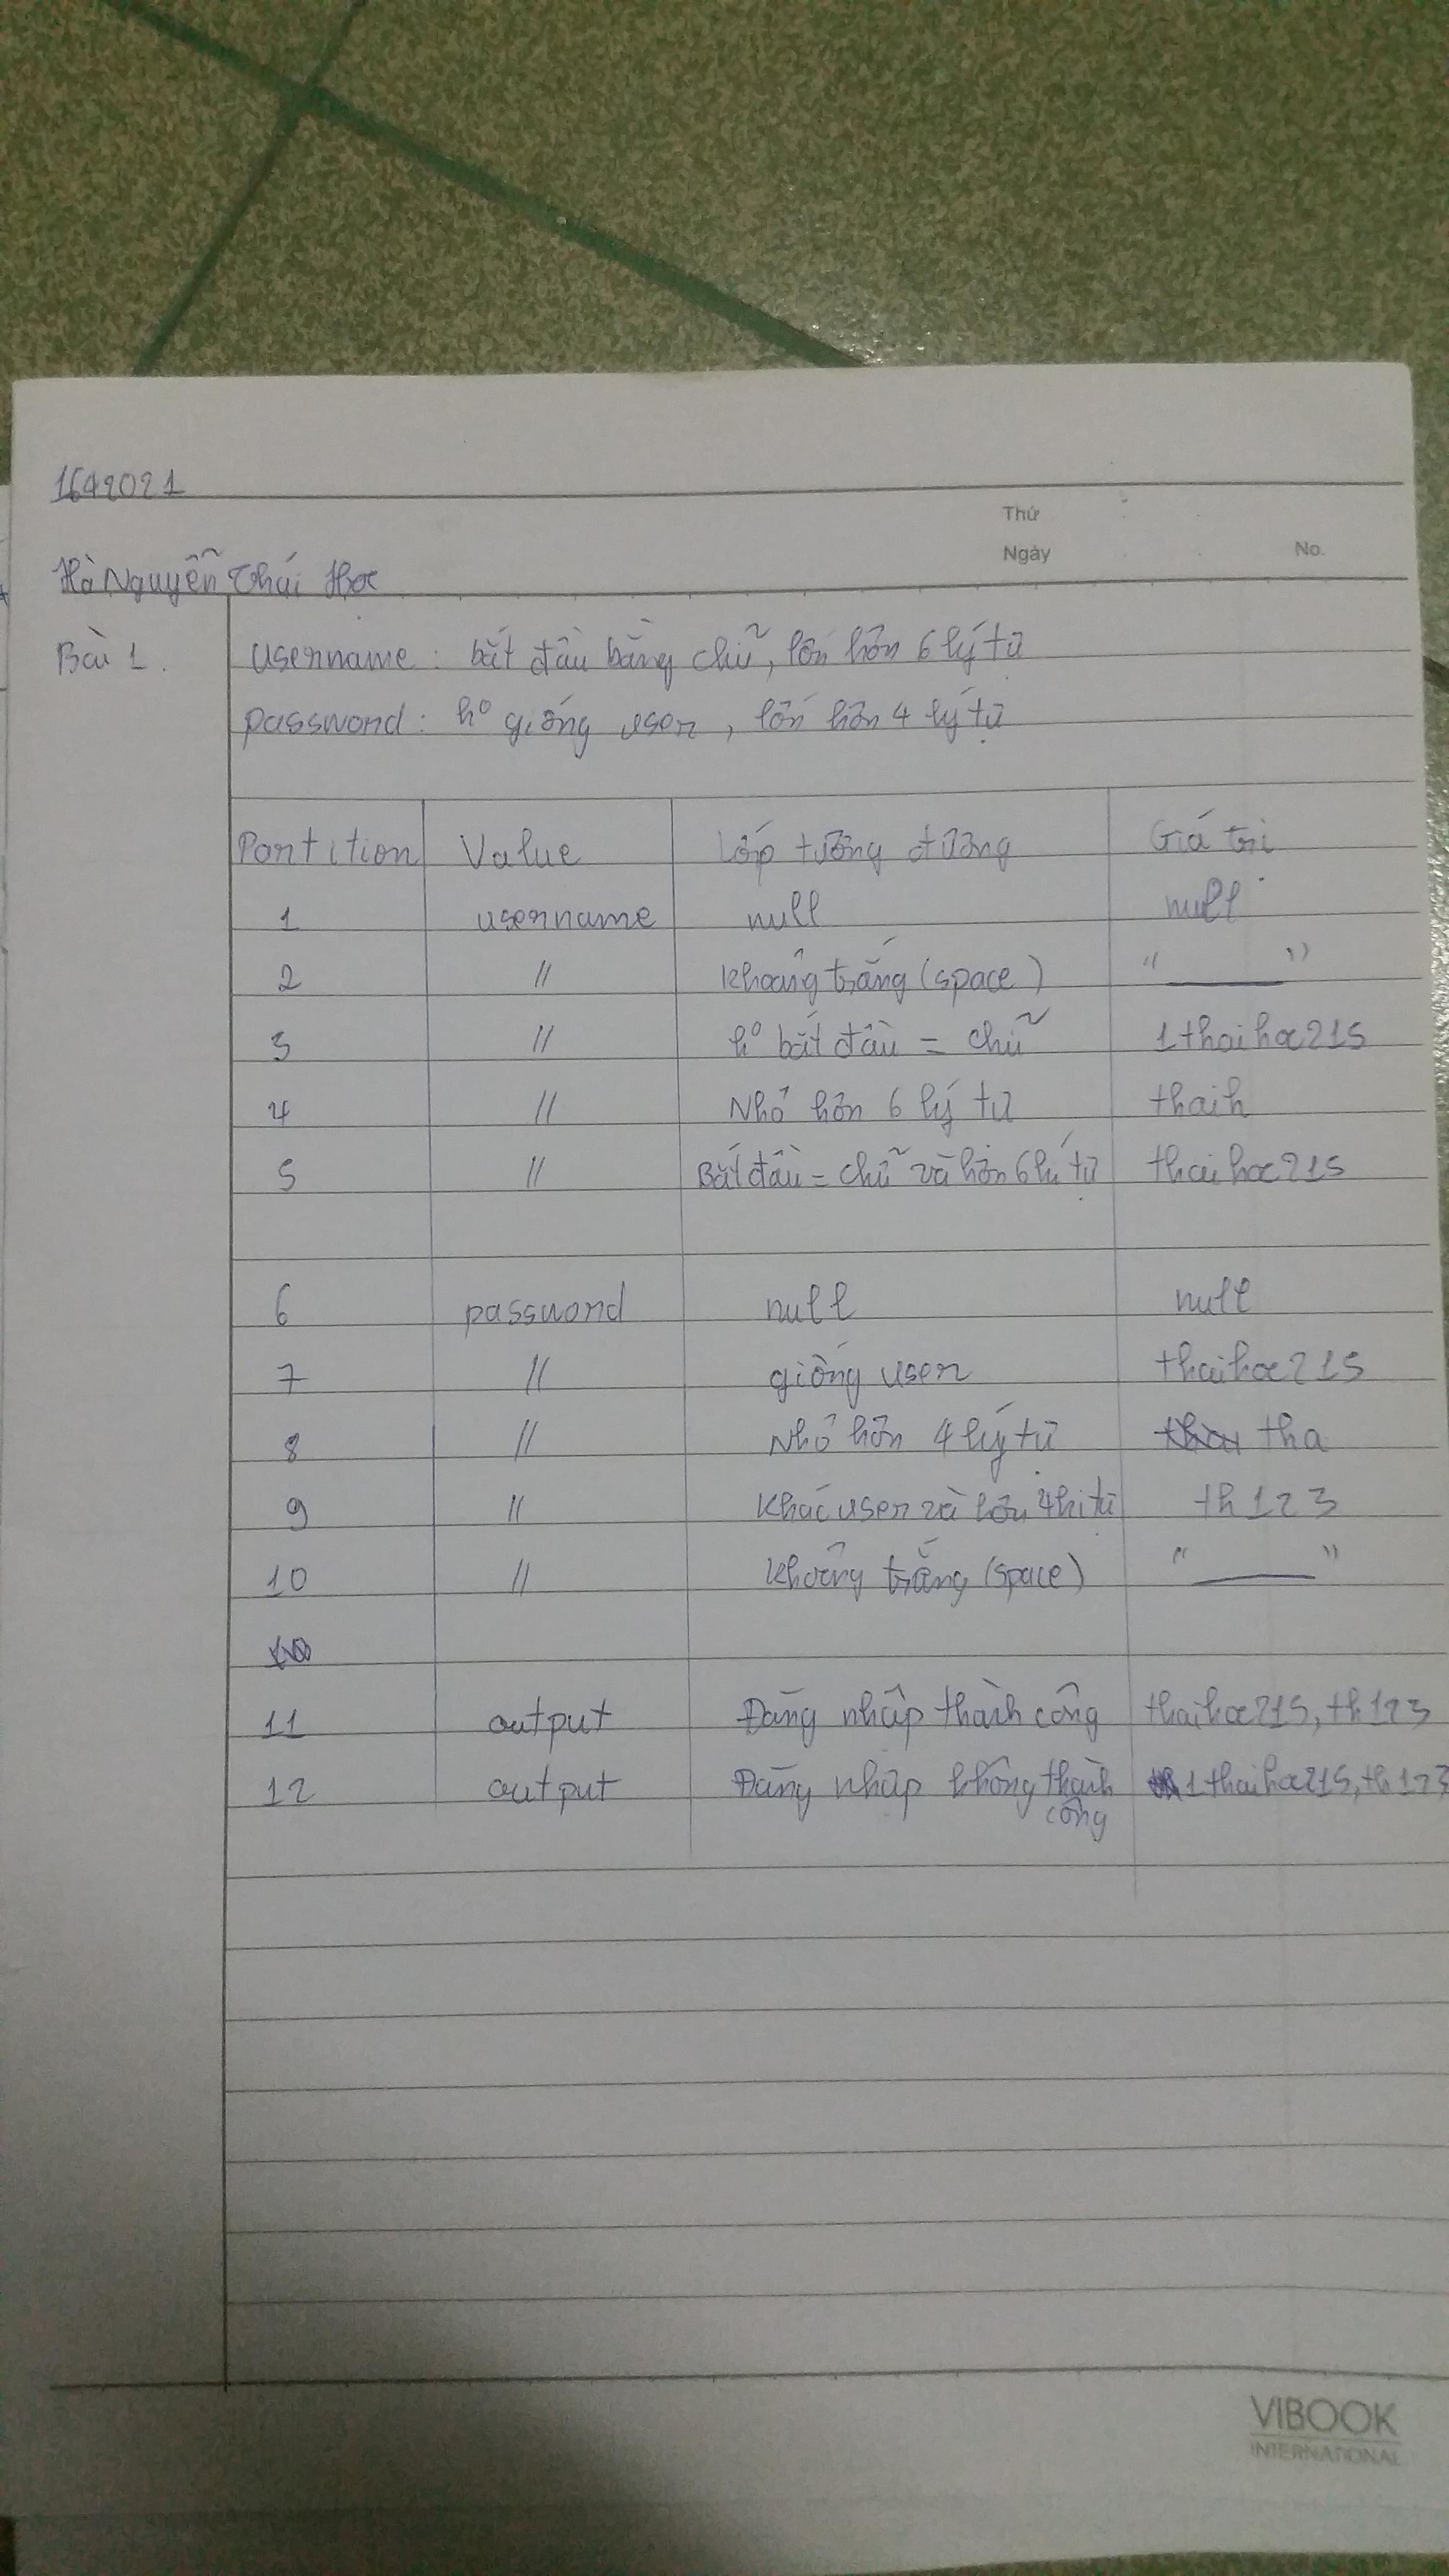 1642021
Thứ
Ngày No.
Hà Nguyễn Thái Học
Bài 1. username: bắt đầu bằng chữ, lớn hơn 6 ký tự
password: ko giống user, lớn hơn 4 ký tự
Partition Value Lớp tương đương Giá trị
1 username null null
2 " khoảng trắng (space) " "
3 " ko bắt đầu = chữ 1thaihoc215
4 " Nhỏ hơn 6 ký tự thaih
5 " Bắt đầu = chữ và hơn 6 kí tự thaihoc215
6 password null null
7 " giống user thaihoc215
8 " Nhỏ hơn 4 ký tự tha
9 " Khác user và lớn 4 kí tự th123
10 " khoảng trắng (space) " "
11 output Đăng nhập thành công thaihoc215, th123
12 output Đăng nhập không thành 1thaihoc215, th123
công
VIBOOK
INTERNATIONAL